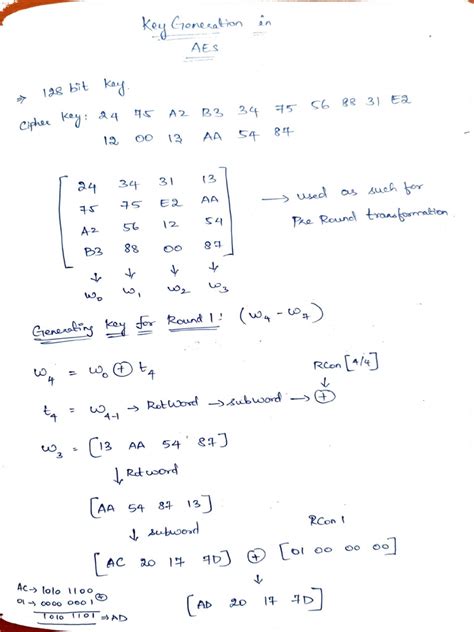 Key Generation in
AES
⇒ 128 bit key.
Cipher Key: 24 75 A2 B3 34 75 56 88 31 E2
12 00 13 AA 54 87
24 34 31 13
75 75 E2 AA → used as such for
A2 56 12 54 Pre Round transformation.
B3 88 00 87
↓ ↓ ↓ ↓
w₀ w₁ w₂ w₃
Generating Key for Round 1: (w₄ - w₇)
w₄ = w₀ ⊕ t₄ RCon [4/4]
↓
t₄ = w₄₋₁ → RotWord → subword → ⊕
w₃ = [13 AA 54 87]
↓ Rotword
[AA 54 87 13]
↓ subword RCon 1
[AC 20 17 7D] ⊕ [01 00 00 00]
↓
AC → 1010 1100 [AD 20 17 7D]
01 → 0000 0001 ⊕
1010 1101 ⇒ AD